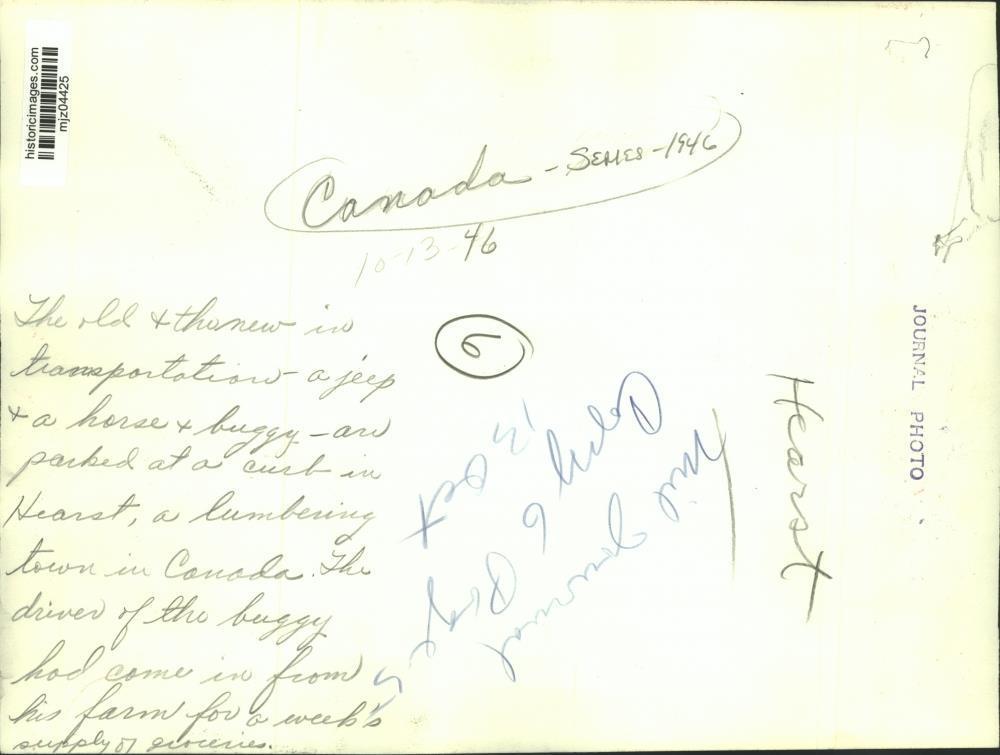 historicimages.com
mjz04425
Canada - SERIES - 1946
10-13-46
The old & the new in
transportation - a jeep
& a horse & buggy - are
parked at a curb in
Hearst, a lumbering
town in Canada. The
driver of the buggy
had come in from
his farm for a week's
supply of groceries.
6
Mil Journal
6
Page
Hearst
JOURNAL PHOTO